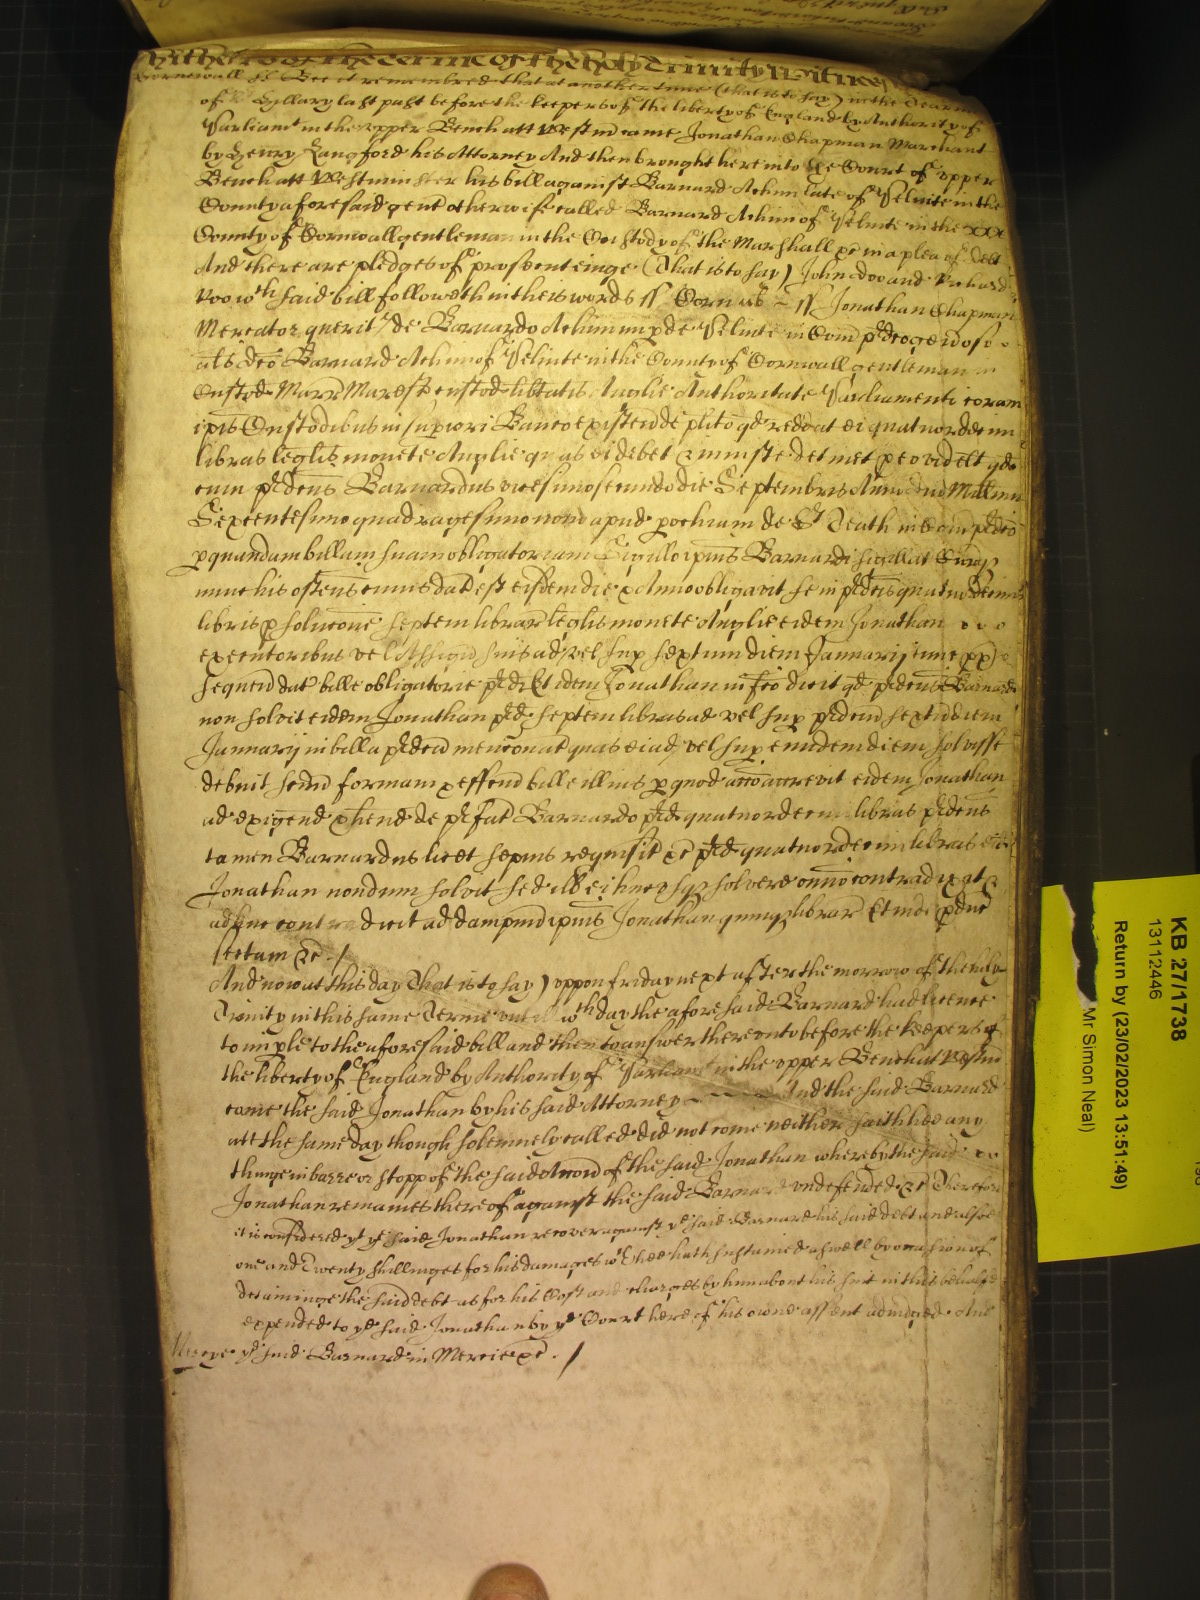 hitherto of the terme of the holy Trinity Witnes
Cornewall ss Bee it remembred that at another time (that is to say) in the Tearme
of Hyllary last past before the keepers of the liberty of England by Authority of
Parliamt in the upper Bench att Westm came Jonathan Chapman Marchant
by Henry Langford his Attorney And then brought here into the Court of upper
Bench att Westminster his bill against Barnard Achim late of Pelinte in the
County aforesaid gent otherwise called Barnard Achim of Pelinte in the
County of Cornwall gentleman in the Custody of the Marshall &c in a plea of debt
And there are pledges of prosecuteinge (That is to say) John doo and Richard
Roo wch said bill followeth in theis words ss Cornub ss Jonathan Chapman
Mercator querit de Barnardo Achim nup de Pelinte in Com pdco generoso
als dco Barnard Achim of Pelinte in the County of Cornwall gentleman in
Custod Marr Maresc custod libtatis Anglie Authoritate Parliamenti coram
ipis Custodibus in supiori Banco existen de plito qd reddat ei quatuordecim
libras leglis monete Anglie quas ei debet & iniuste detinet p eo videlt qd
cum pdcus Barnardus vicesimo secundo die Septembris Anno dni Millimo
Sexcentesimo quadragesimo nono apud pochiam de St Teath in Com pdco
p quandam billam suam obligatoriam Sigillo ipius Barnardi sigillat Curieq
nunc hic ostens cuius dat est eisdem die & Anno obligavit se in pdcis quatuordecim
libris p solucone septem librar leglis monete Anglie eidem Jonathan
executoribus vel Assign suis ad vel sup sextum diem Januarij tunc px
sequen dat bille obligatorie pd Et idem Jonathan in fco dicit qd pdcus Barnard
non solvit eidem Jonathan pd septem libras ad vel sup pdcum sextum diem
Januarij in billa pdca menconat quas ei ad vel sup eundem diem solvisse
debuit scdm formam & effcum bille illius p quod acco accrevit eidem Jonathan
ad exigend & hend de pfat Barnardo pd quatuordecim libras pdcus
tamen Barnardus licet sepius requisit &c pd quatuordecim libras eidem
Jonathan nondum solvit sed ill ei hucusq solvere omnino contradixit &
adhuc contradicit ad dampnum ipius Jonathan quinq librar Et inde pduc
sectam &c /
And now at this day (That is to say) uppon friday next after the morrow of the holy
Trinity in this same Terme untill wch day the aforesaid Barnard had licence
to imple to the aforesaid bill and then to answer thereunto before the keepers of
the liberty of England by Authority of Parliamt in the upper Bench at Westm
came the said Jonathan by his said Attorney And the said Barnard
att the same day though solemnely called did not come neither saith hee any
thinge in barre or stopp of the said Accon of the said Jonathan whereby the said
Jonathan remaines thereof against the said Barnard undefended &c Therefore
it is considered yt ye said Jonathan recover against ye said Barnard his said debt and alsoe
one and Twenty shillinges for his damages wch hee hath sustained aswell by occasion of
detaininge the said debt as for his Cost and charges by him about his suit in this behalfe
expended to ye said Jonathan by ye Court here of his owne assent adiudged And
Mercye ye said Barnard in Mercie &c . /
KB 27/1738
13112446
Return by (23/02/2023 13:51:49)
Mr Simon Neal)